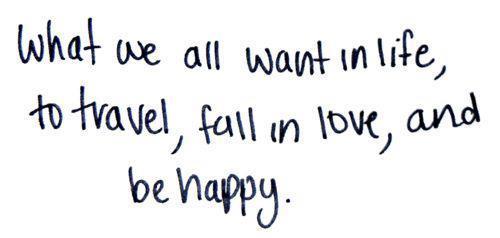 What we all want in life,
to travel, fall in love, and
be happy.